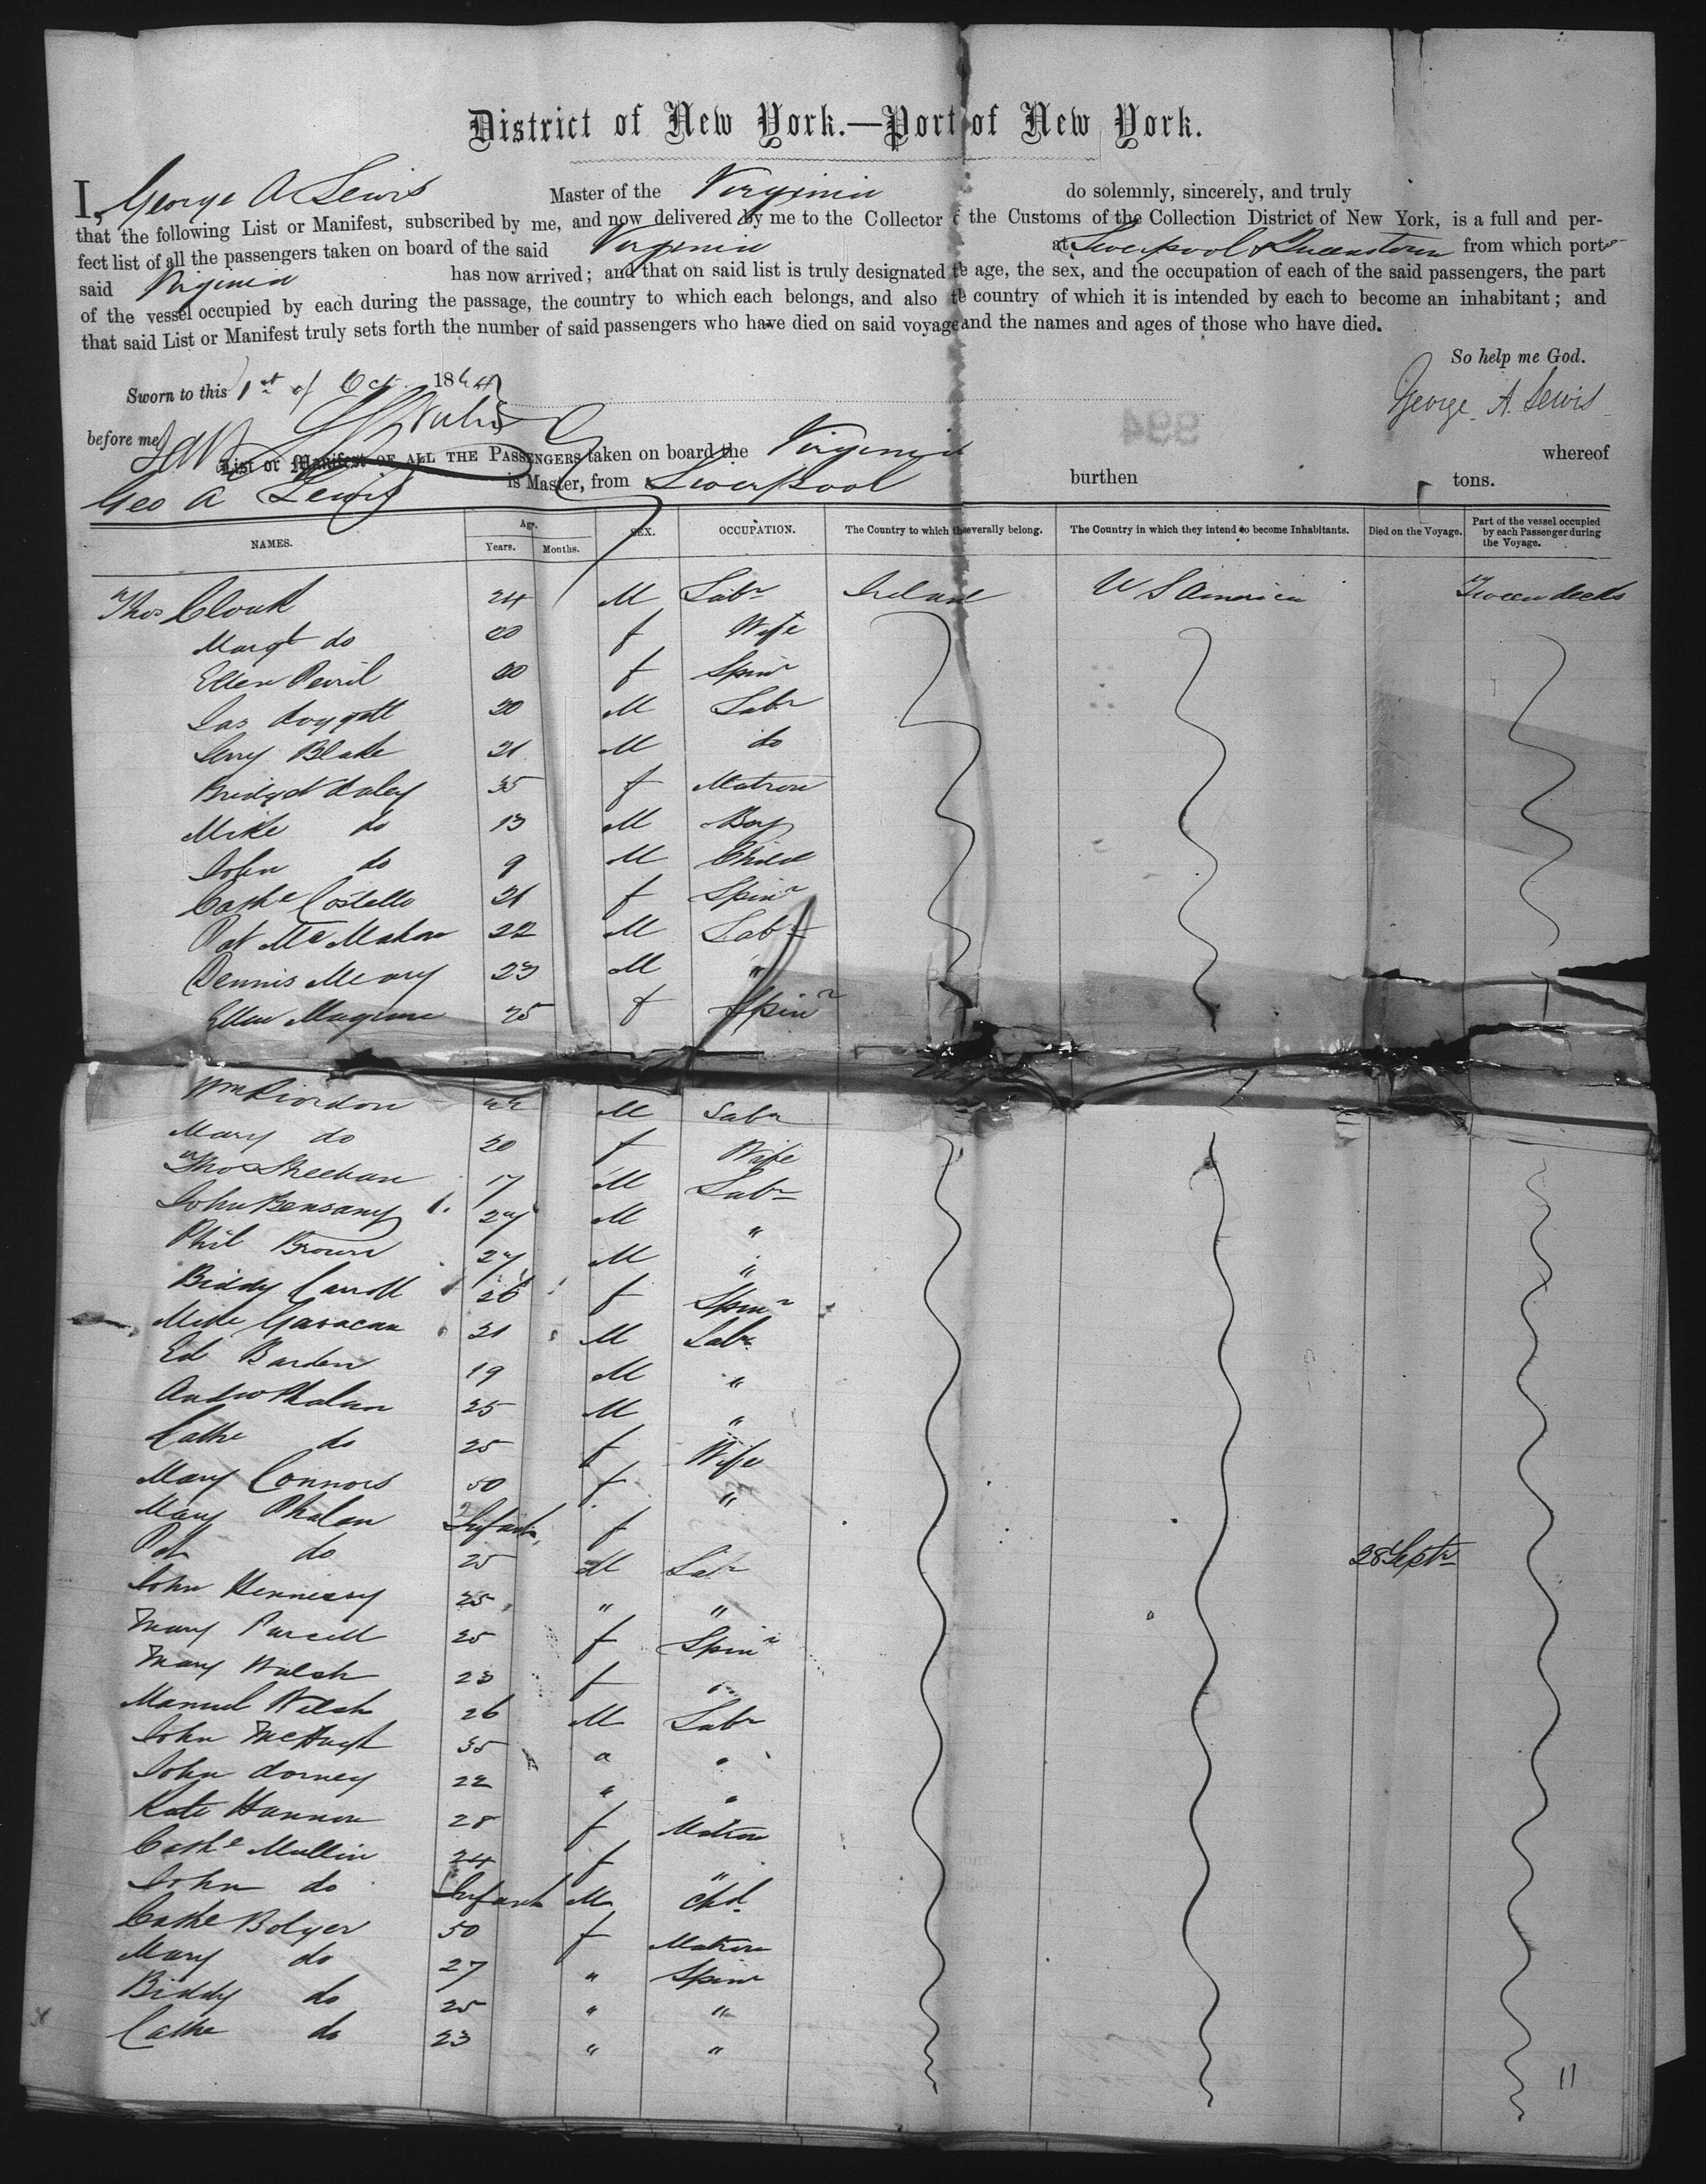 District of New York.—Port of New York.
I, George A Lewis Master of the Virginia do solemnly, sincerely, and truly
that the following List or Manifest, subscribed by me, and now delivered by me to the Collector the Customs of the Collection District of New York, is a full and per-
fect list of all the passengers taken on board of the said Virginia at Liverpool & Queenstown from which ports
said Virginia has now arrived; and that on said list is truly designated age, the sex, and the occupation of each of the said passengers, the part
of the vessel occupied by each during the passage, the country to which each belongs, and also country of which it is intended by each to become an inhabitant; and
that said List or Manifest truly sets forth the number of said passengers who have died on said voyage and the names and ages of those who have died.
So help me God.
Sworn to this 1st of Oct 1864
George A. Lewis
before me
List or Manifest OF ALL THE PASSENGERS taken on board the Virginia whereof
Geo A Lewis is Master, from Liverpool burthen tons.
NAMES. Age. Years. Months. SEX. OCCUPATION. The Country to which severally belong. The Country in which they intend to become Inhabitants. Died on the Voyage. Part of the vessel occupied by each Passenger during the Voyage.
Thos Cloak 24 M Labr Ireland U S America Tween decks
Margt do 20 f Wife
Ellen 20 f Spinr
Jas 20 M Labr
Jerry Blake 21 M do
Bridget Daley 35 f Matron
Mike do 13 M Boy
John do 9 M Child
Cathe Costello 21 f Spinr
Pat McMahon 22 M Labr
Dennis Meary 23 M "
Ellen 25 f Spinr
Wm Riordon 22 M Labr
Mary do 20 f Wife
Thos Sheehan 17 M Labr
John 27 M "
Phil Brown 27 M "
Biddy Carroll 26 f Spinr
Mike Garacan 21 M Labr
Ed Barden 19 M "
Andw Phalan 25 M "
Cathe do 25 f Wife
Mary Connors 50 f "
Mary Phalan Infant f
Pat do 25 M Labr 28 Septr
John Hennessy 25 " "
Mary Purcell 25 f Spinr
Mary Walsh 23 f "
Manuel Welsh 26 M Labr
John McHugh 35 " "
John Dorney 22 " "
Kate Hannon 28 f Matron
Cathe Mullin 24 f "
John do Infant M Chd
Cathe Bolger 50 f Matron
Mary do 27 " Spinr
Biddy do 25 " "
Cathe do 23 " "
11